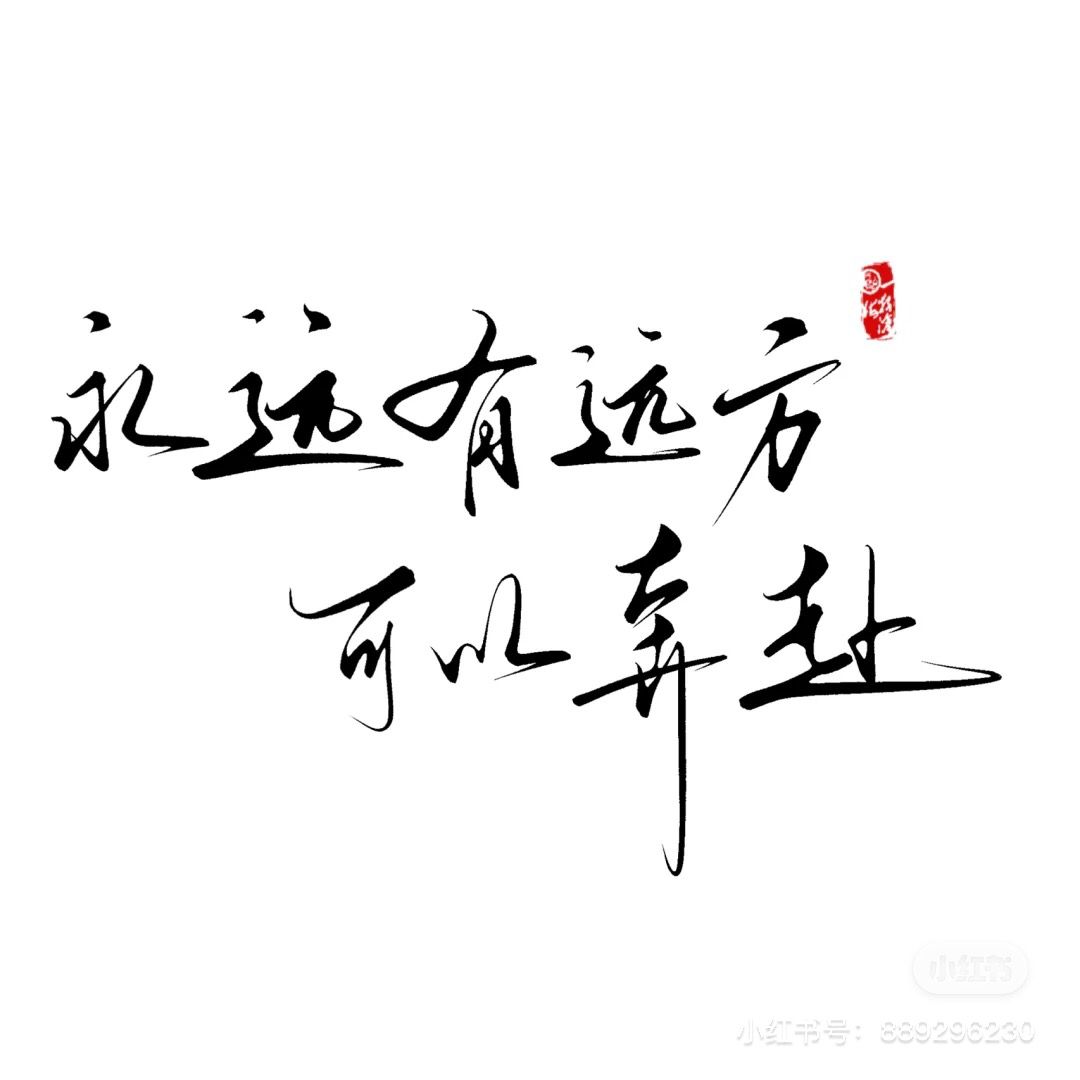 永远有远方
可以奔赴
小红书
小红书号：889296230